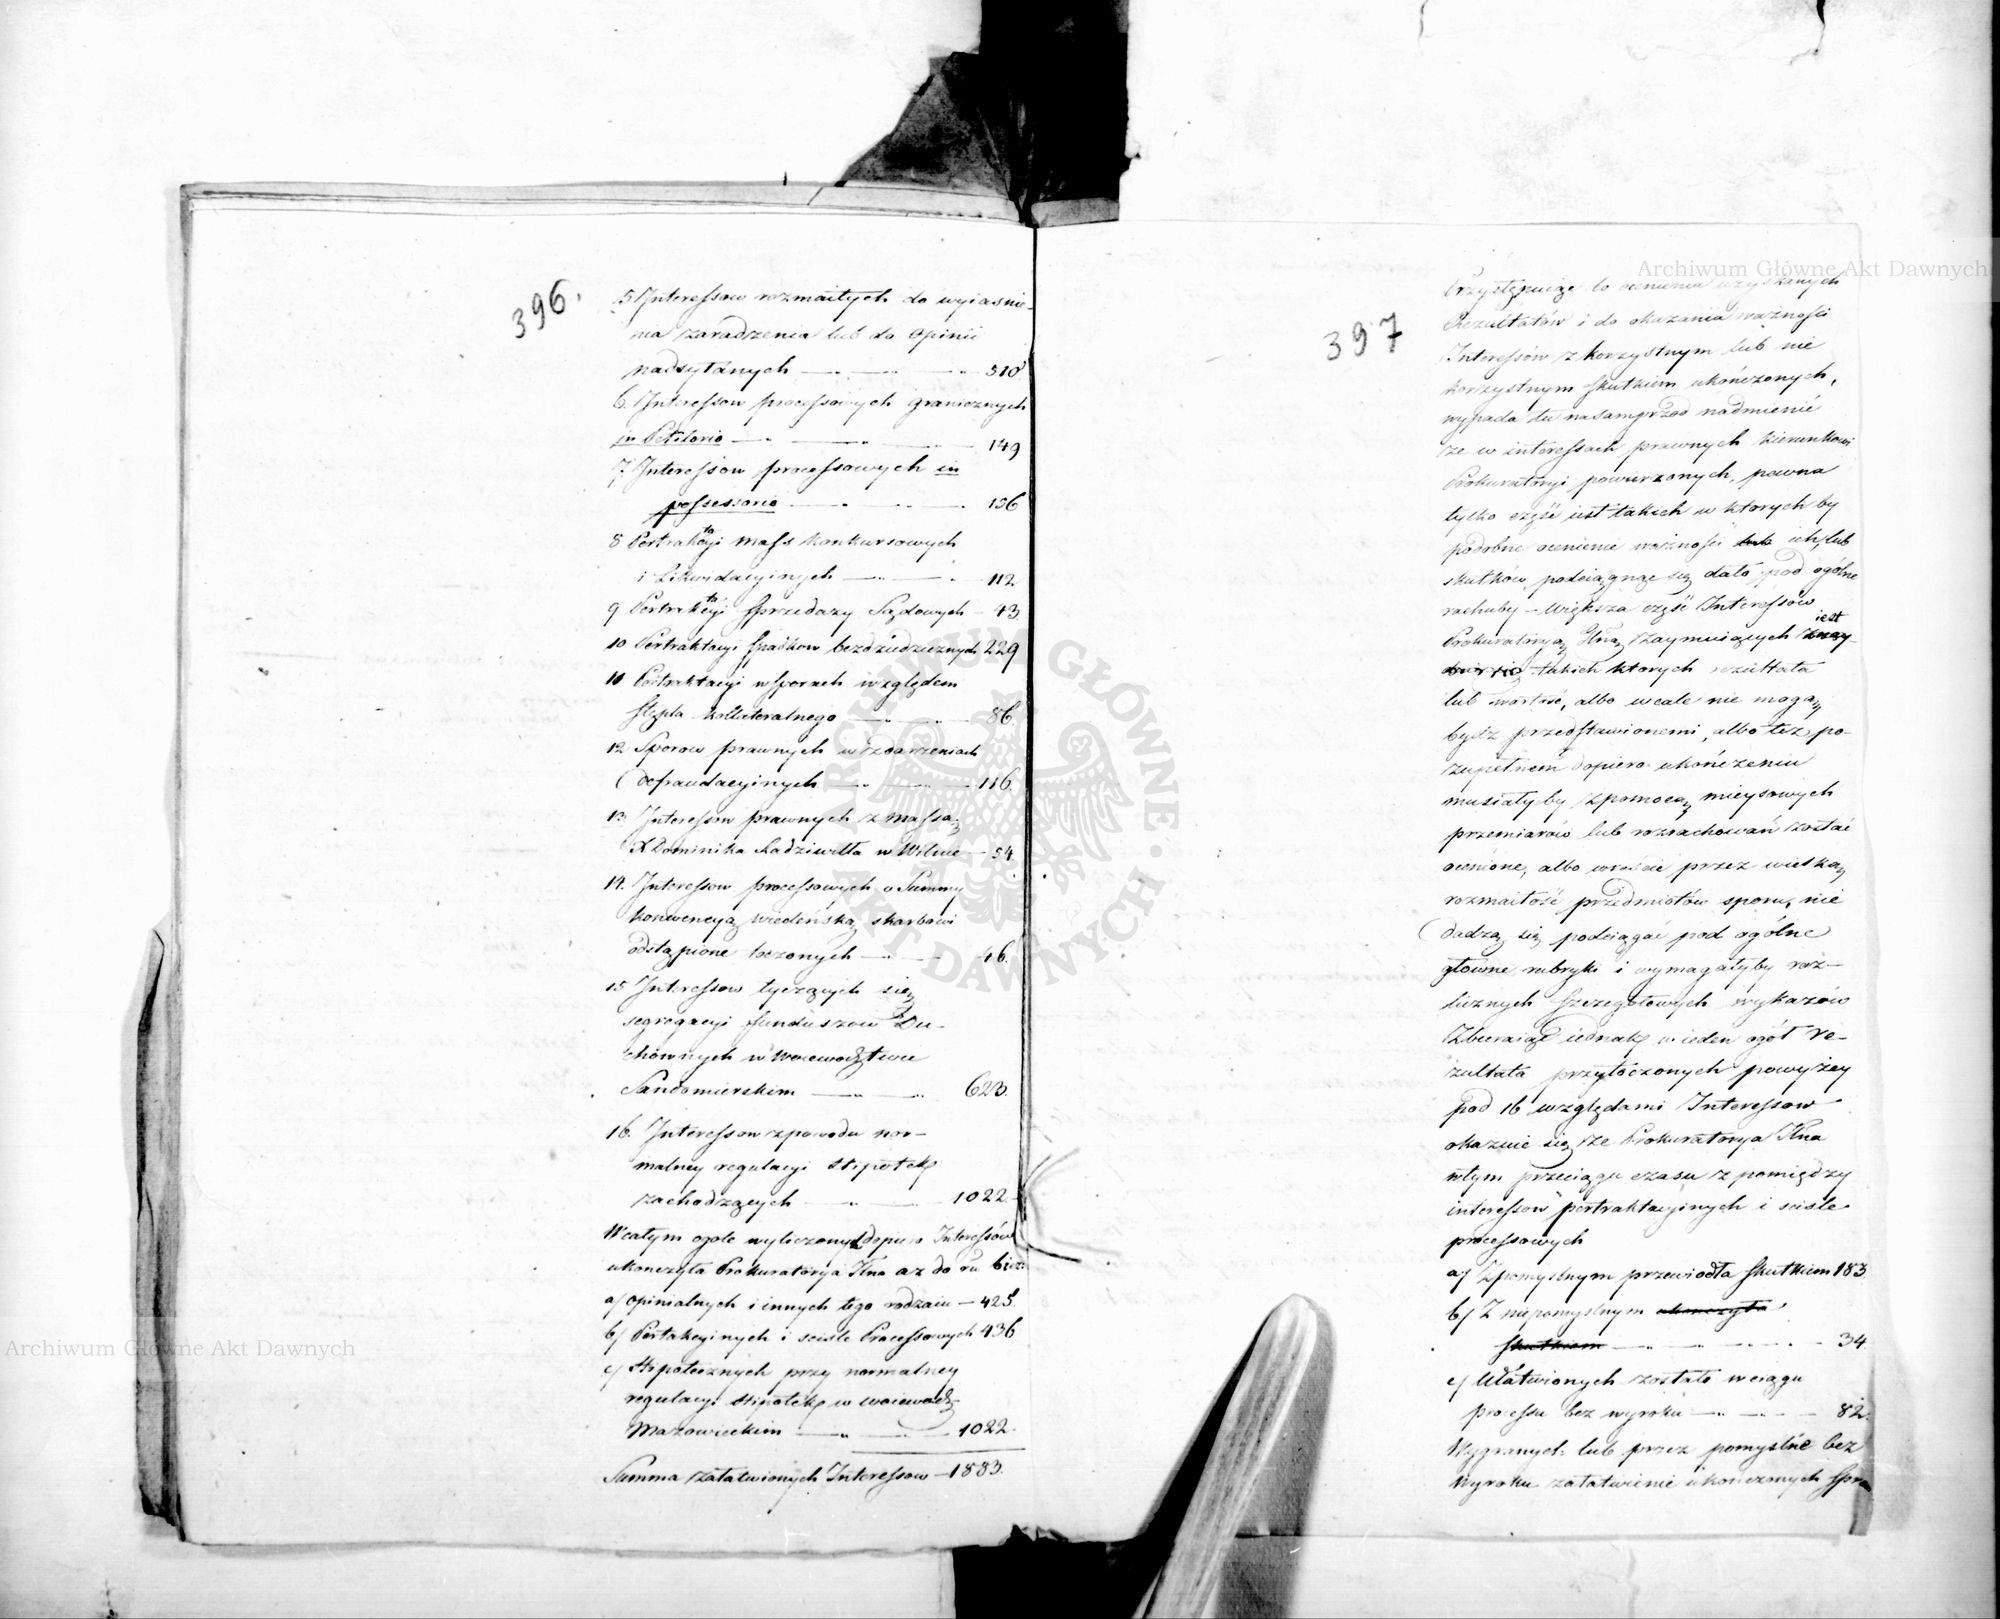 396.
5 Interessow rozmaitych do wyiasnie-
nia zaradzenia lub do Opinii
nadsyłanych — 510
6. Interessow processowych granicznych
in Petitorio — 149
7. Interessow processowych in
possessorio — 156
8 Pertraktacyi mass konkursowych
i Likwidacyinych — 112
9 Pertraktacyi sprzedazy Sądowych — 43
10 Pertraktacyi spadkow bezdziedzicznych 229
11 Pertraktacyi w sporach względem
stępla kollateralnego — 86
12 Sporow prawnych w zdarzeniach
defraudacyinych — 116
13. Interessow prawnych z massą
X Dominika Radziwiłła w Wilnie — 54
14. Interessow processowych o Summy
konwencyą wiedenską skarbowi
odstąpione toczonych — 46.
15 Interessow tyczących się
segregacyi funduszow Du-
chownych w Woiewodztwie
Sandomierskim — 623.
16. Interessow z powodu nor-
malney regulacyi Hipotek
zachodzących — 1022.
W całym ogole wyliczonych dopiero Interessów
ukonczyła Prokuratorya Klna az do ru bież:
a/ opinialnych i innych tego rodzaiu — 425.
b/ Pertakcyinych i scisle Processowych 436
c/ Hipotecznych przy normalney
regulacyi Hipotek w woiewodz
Mazowieckim — 1022.
Summa załatwionych Interessow — 1883.
397
Przystępuiąc do ocenienia uzyskanych
Rezultatów i do okazania ważności
Interessów z korzystnym lub nie
korzystnym skutkiem ukończonych,
wypada tu nasamprzod nadmienić
że w interessach prawnych kierunkowi
Prokuratoryi powierzonych, pewna
tylko część iest takich w ktorych by
podobne ocenienie ważności ich lub
skutków, podciągnąc się dało pod ogólne
rachuby — Większa część Interessów
Prokuratoryą Klną zaymuiących iest
takich ktorych rezultata
lub wartość, albo wcale nie mogą
bydz przedstawionemi, albo też po
zupełnem dopiero ukończeniu
musiałyby z pomocą mieysowych
przemiarów lub rozrachowań zostać
ocenione, albo wreście przez wielką
rozmaitość przedmiotów sporu, nie
dadzą się podciągać pod ogólne
główne rubryki i wymagałyby roz-
licznych szczegołowych wykazów
Zbieraiąc iednak w ieden ogół re-
zultata przytoczonych powyżey
pod 16 względami Interessow
okazuie się że Prokuratorya Klna
w tym przeciągu czasu z pomiędzy
interessow pertraktacyinych i scisle
processowych
a/ Z pomyslnym przewiodła skutkiem 183
b/ Z niepomyslnym ukonczyła
skutkiem — 34
c/ Ułatwionych zostało w ciągu
processu bez wyroku — 82.
Wygranych lub przez pomyslne bez
Wyroku załatwienie ukończonych spraw
Archiwum Główne Akt Dawnych
Archiwum Główne Akt Dawnych
ARCHIWUM GŁÓWNE AKT DAWNYCH